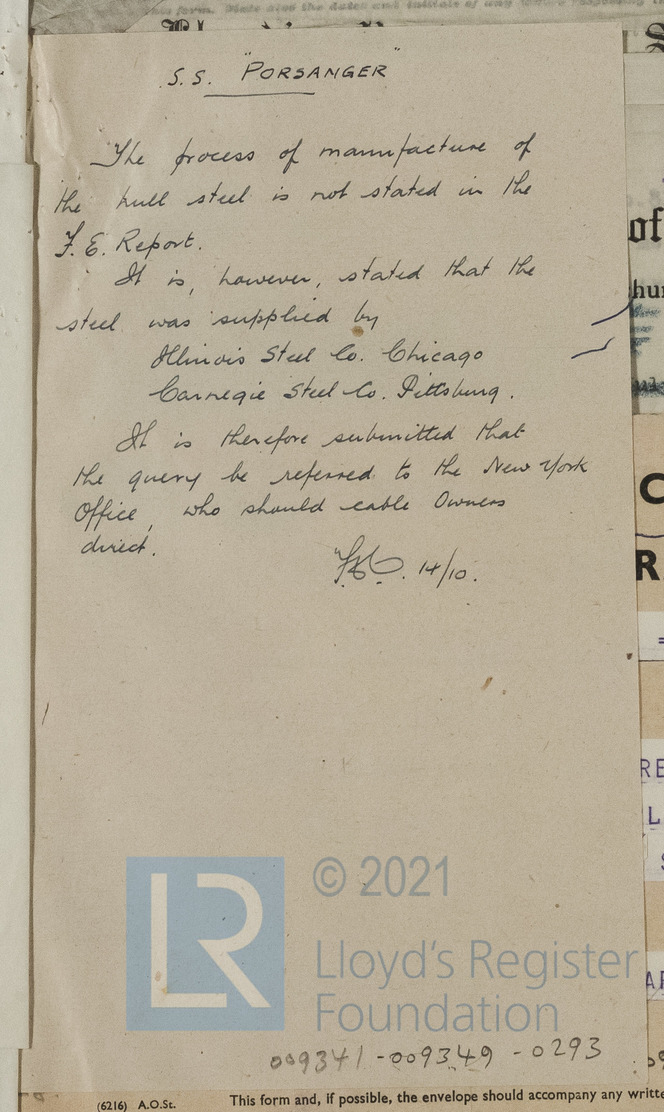 S.S. "PORSANGER"
The process of manufacture of
the hull steel is not stated in the
F.E. Report.
It is, however, stated that the
steel was supplied by
Illinois Steel Co. Chicago
Carnegie Steel Co. Pittsburg.
It is therefore submitted that
the query be referred to the New York
Office, who should cable Owners
direct.
14/10.
of
hur
C
R
RE
L
S
AR
LR
© 2021
Lloyd's Register
Foundation
009341-009349-0293
(6216) A.O.St. This form and, if possible, the envelope should accompany any writte